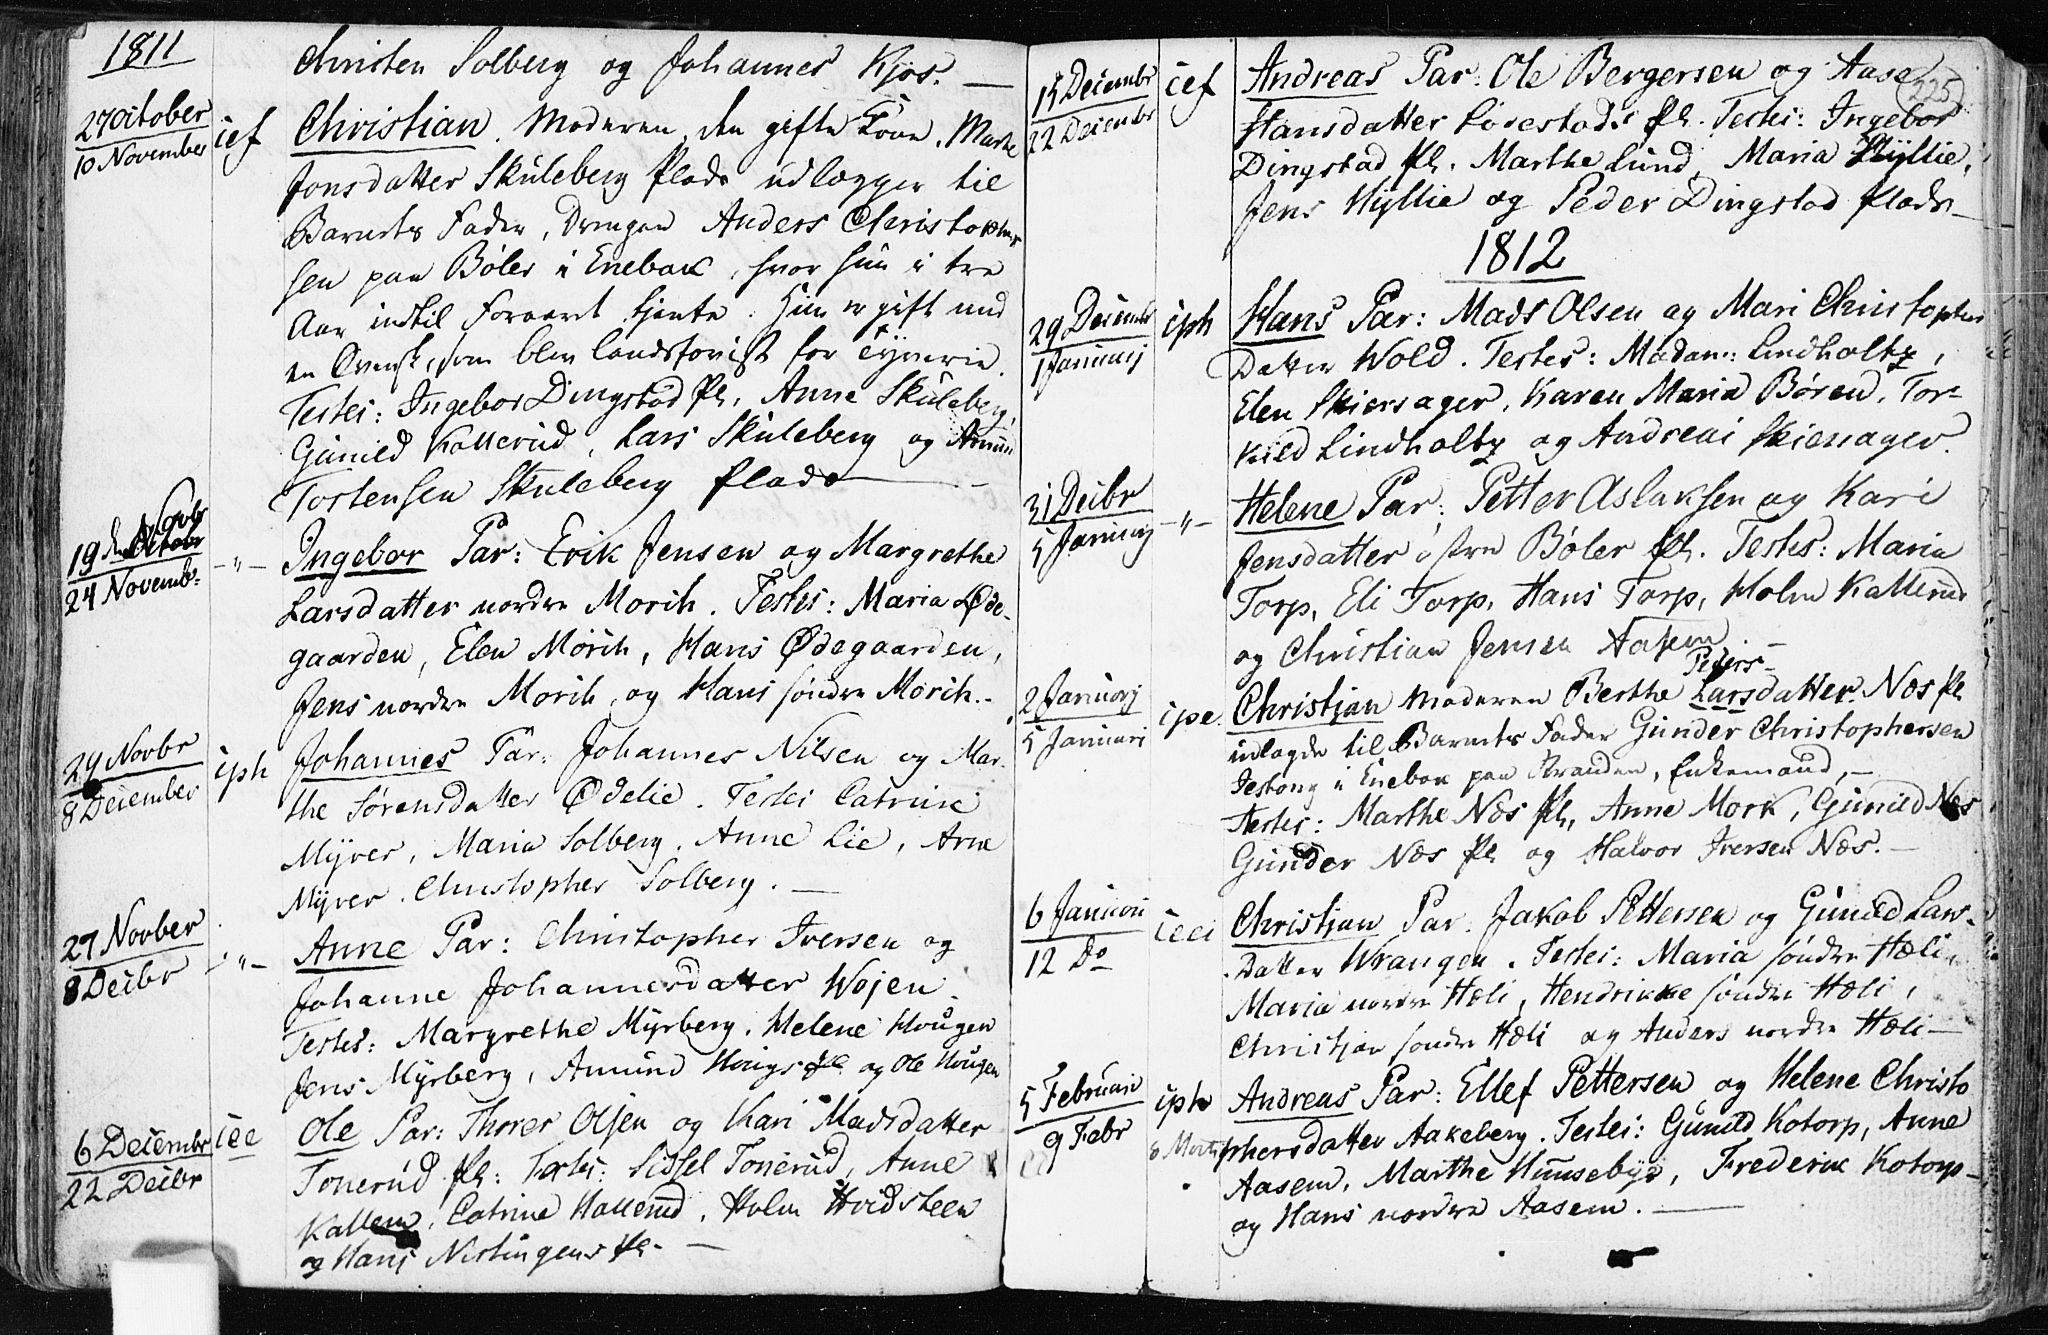 1811
Christen Solberg og Johannes Kjos. —
27 October
10 November
icf
Christian. Moderen, den gifte Kone, Marthe
Jonsdatter Skuleberg Plads udlægger til
Barnets Fader, Drengen Anders Christopher
sen paa Bøler i Enebak, hvor hun i tre
Aar indtil Foraaret tjente. Hun er gift med
en Svensk, som blev landsforvist for Tyverie.
Testes: Ingebor Dingstad Pl, Anne Skuleberg,
Gunild Kallerud, Lars Skuleberg og Amun
Tostensen Skuleberg Plads —
19 de Novbr
24 Novembr
— " —
Ingebor Par: Erik Jensen og Margrethe
Larsdatter nordre Morih. Testes: Maria Øde-
gaarden, Elen Morih, Hans Ødegaarden,
Jens nordre Morih, og Hans søndre Morih. -
29 Novbr
8 December
iph
Johannes Par: Johannes Nilsen og Mar-
the Sørensdatter Ødelie. Testes Catrine
Myrer, Maria Solberg, Anne Lie, Arne
Myrer, Christopher Solberg. —
27 Novber
8 Decbr
— " —
Anne Par: Christopher Iversen og
Johanne Johannesdatter Wøjen.
Testes: Margrethe Myrberg, Helene Hougen
Jens Myrberg, Amund Hougs Pl og Ole Hougen
6 Decembr
22 Decbr
icc
Ole Par: Thorer Olsen og Kari Madsdatter
Tonerud Pl: Testes: Sissel Tonerud, Anne
Kallerud, Catrine Kallerud, Holm Hvidsteen
og Hans Nistingens Pl. —
225
15 Decembr
22 Decembr
icf
Andreas Par: Ole Bergersen og Aase
Hansdatter Losestads Pl. Testes: Ingebor
Dingstad Pl. Marthe Lund, Maria Hyllie,
Jens Hyllie og Peder Dingstad Plads —
1812
29 Decembr
1 Januarj
iph
Hans Par: Mads Olsen og Mari Christophers
Datter Wold. Testes: Madam: Lindholtz,
Elen Skiersager, Karen Maria Børen, Tor-
kild Lindholtz og Andreas Skiensager.
31 Decbr
5 Januarj
— " —
Helene Par: Petter Aslaksen og Kari
Jensdatter østre Bøler Pl. Testes: Maria
Torp, Eli Torp, Hans Torp, Holm Kallerud
og Christian Jensen Aasem. —
2 Januarj
5 Januari
ipe.
Peders
Christjan Moderen Berthe Larsdatter Næs Pl
udlagde til Barnets Fader Gunder Christophersen
i Enebak paa Stranden, Enkemand, —
Testes: Marthe Næs Pl, Anne Mork, Gunild Næs
Gunder Næs Pl og Halvor Iversen Næs. —
6 Januari
12 Do
icci
Christjan Par: Jakob Pettersen og Gunild Lars-
Datter Wrangen. Testes: Maria søndre Hæli,
Maria nordre Hæli, Hendrikke søndre Hæli,
Christjan søndre Hæli og Anders nordre Hæli —
5 Februari
9 Febr
iph
Andreas Par: Ellef Pettersen og Helene Christo
phersdatter Aakeberg. Testes: Gunild Kotorp, Anne
Aasem, Marthe Hunsebye, Frederik Kotorp —
og Hans nordre Aasem. —